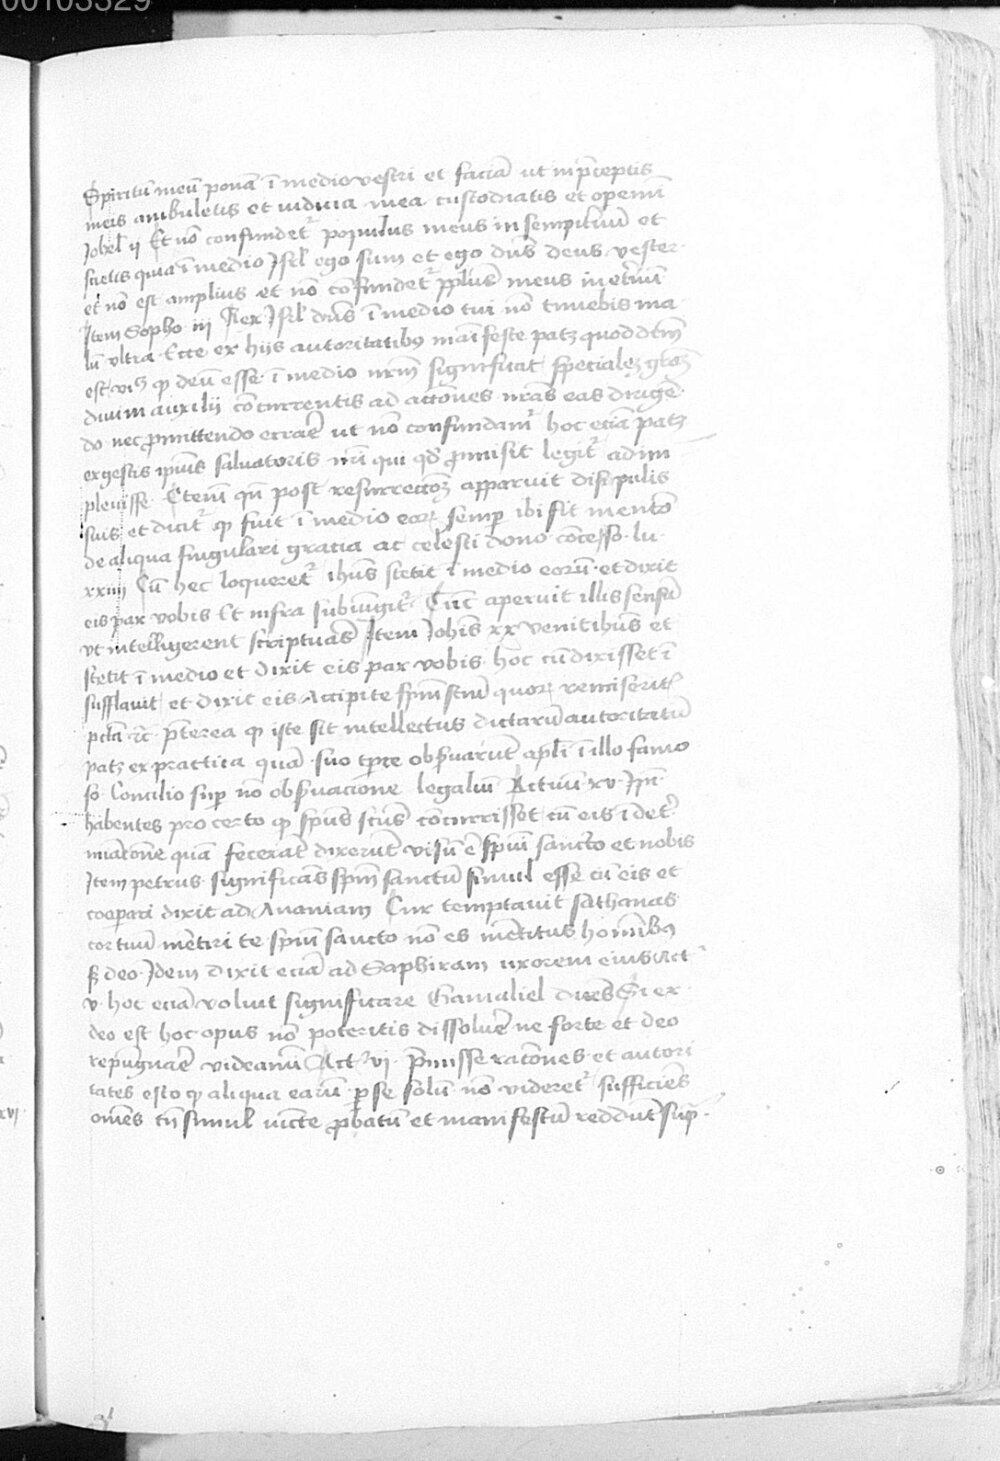 00103329
Spiritū meū ponā ī medio vestri et faciā ut in p̄ceptis
meis ambuletis et iudicia mea custodiatis et operemī
Johel ij Et nō confundet᷑ populus meus in sempit̄nū et
scietis quia ī medio Isrl̄ ego sum et ego dn̄s deus vester
et nō est amplius et nō cōfundet᷑ pp̄lus meus in et̄nū
Item Sopho iij Rex Isrl̄ dn̄s ī medio tui nō timebis ma
lū ultra Ecce ex hijs autoritatibꝯ maīfeste patꝫ quod dc̄m
est vꝫ ꝙ deū esse ī medio nr̄m significat specialeꝫ
diuini auxilij cōcurrentis ad actōnes nr̄as eas dirigē
do nec ꝑmittendo errare ut nō confundam᷑ hoc eciā patꝫ
ex gestis ipiūs saluatoris nr̄i qui qd̄ ꝓmisit legit᷑ adim
pleuisse Etenī qn̄ post resurrectōꝫ apparuit discipulis
suis et dicit᷑ ꝙ fuit ī medio eoꝝ semp̄ ibi fit mentō
de aliqua singulari gracia ac celesti dono cōcesso lu
xxiiij Cū hec loqueret᷑ ihūs stetit ī medio eorū et dixit
eis pax vobis Et infra subiūgit᷑ Tūc aperuit illis sensū
ut intelligerent scripturas Item Johis xx venit ihūs et
stetit ī medio et dixit eis pax vobis hoc cū dixisset ī
sufflauit et dixit eis Accipite spm̄ sctm̄ quoꝝ remiserit᷑
pctā ⁊c̄ p̄terea ꝙ iste sit intellectus dictarū autoritatū
patꝫ ex practica quā suo tp̄re obseruarūt apl̄i ī illo famo
so Concilio sup̄ nō obseruacione legaliū Actuū xv Ip̄i
habentes pro certo ꝙ spūs scūs cōcurrisset cū eis ī det̄
minatōne quā fecerāt dixerūt visū ē spūi sancto et nobis
Item petrus significās spm̄ sanctū simul esse cū eis et
coopari dixit ad Ananiam Cur temptauit sathanas
cor tuum mētiri te spūi sancto nō es mētitus hominibꝯ
sꝫ deo Idem dixit eciā ad Saphiram uxorem eius Act᷑
v hoc eciā voluit significare Gamaliel dicēs Si ex
deo est hoc opus nō poteritis dissoluere ne forte et deo
repugnare videamī Act᷑ vi p̄misse ratōnes et autori
tates esto ꝙ aliqua earū ꝑ se solū nō videret᷑ sufficiēs
om̄es tn̄ simul iūcte ꝓbatū et manifestū reddūt sup̄